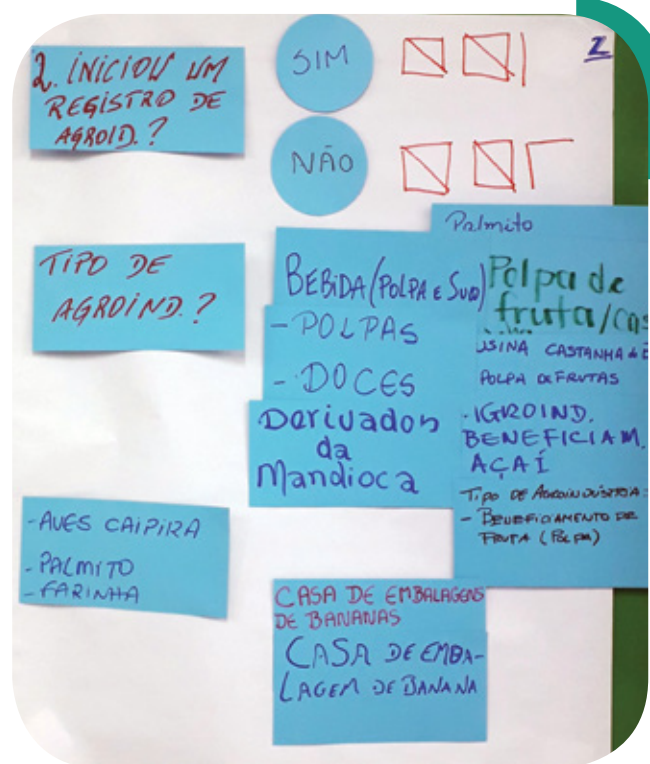 2. INICIOU UM
REGISTRO DE
AGROID.?
SIM
2
NÃO
TIPO DE
AGROIND.?
BEBIDA (POLPA E SUCO)
- POLPAS
- DOCES
Derivados
da
Mandioca
Palmito
Polpa de
fruta/cas
USINA CASTANHA
POLPA DE FRUTAS
BENEFICIAM.
AÇAÍ
TIPO DE AGROINDÚSTRIA:
- BENEFICIAMENTO DE
FRUTA (POLPA)
- AVES CAIPIRA
- PALMITO
- FARINHA
CASA DE EMBALAGENS
DE BANANAS
CASA DE EMBA-
LAGEM DE BANANA